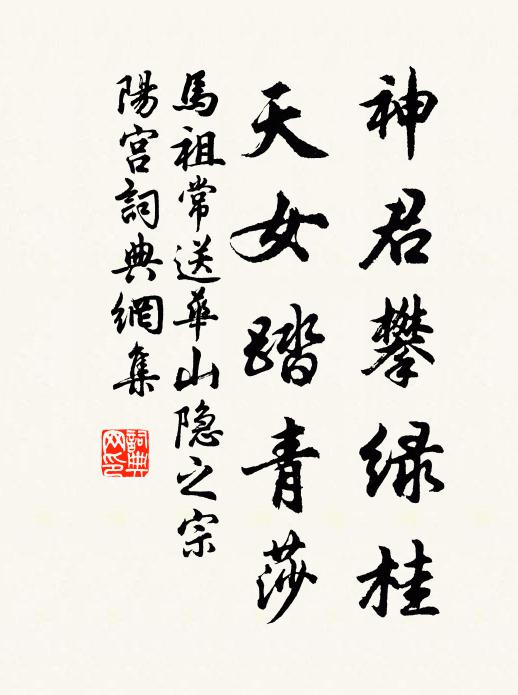 神君攀绿桂
天女踏青莎
馬祖常送華山隐之宗
陽宫詞典網集
詞典网印